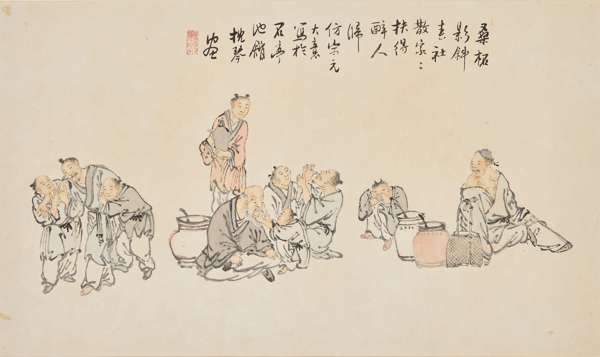 桑柘
影斜
春社
散家〻
扶得
醉人
歸
仿宋元
大意
寫於
石亭
池館
枕琴